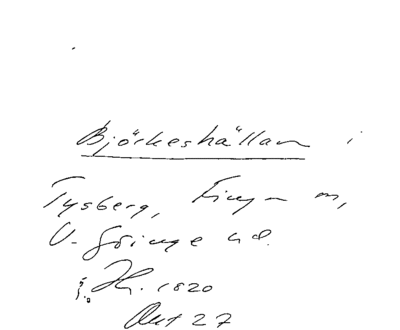 Björkeshällan i
Tysberg, Finja sn,
V. Göinge hd.
Hh. 1820
Okt 27